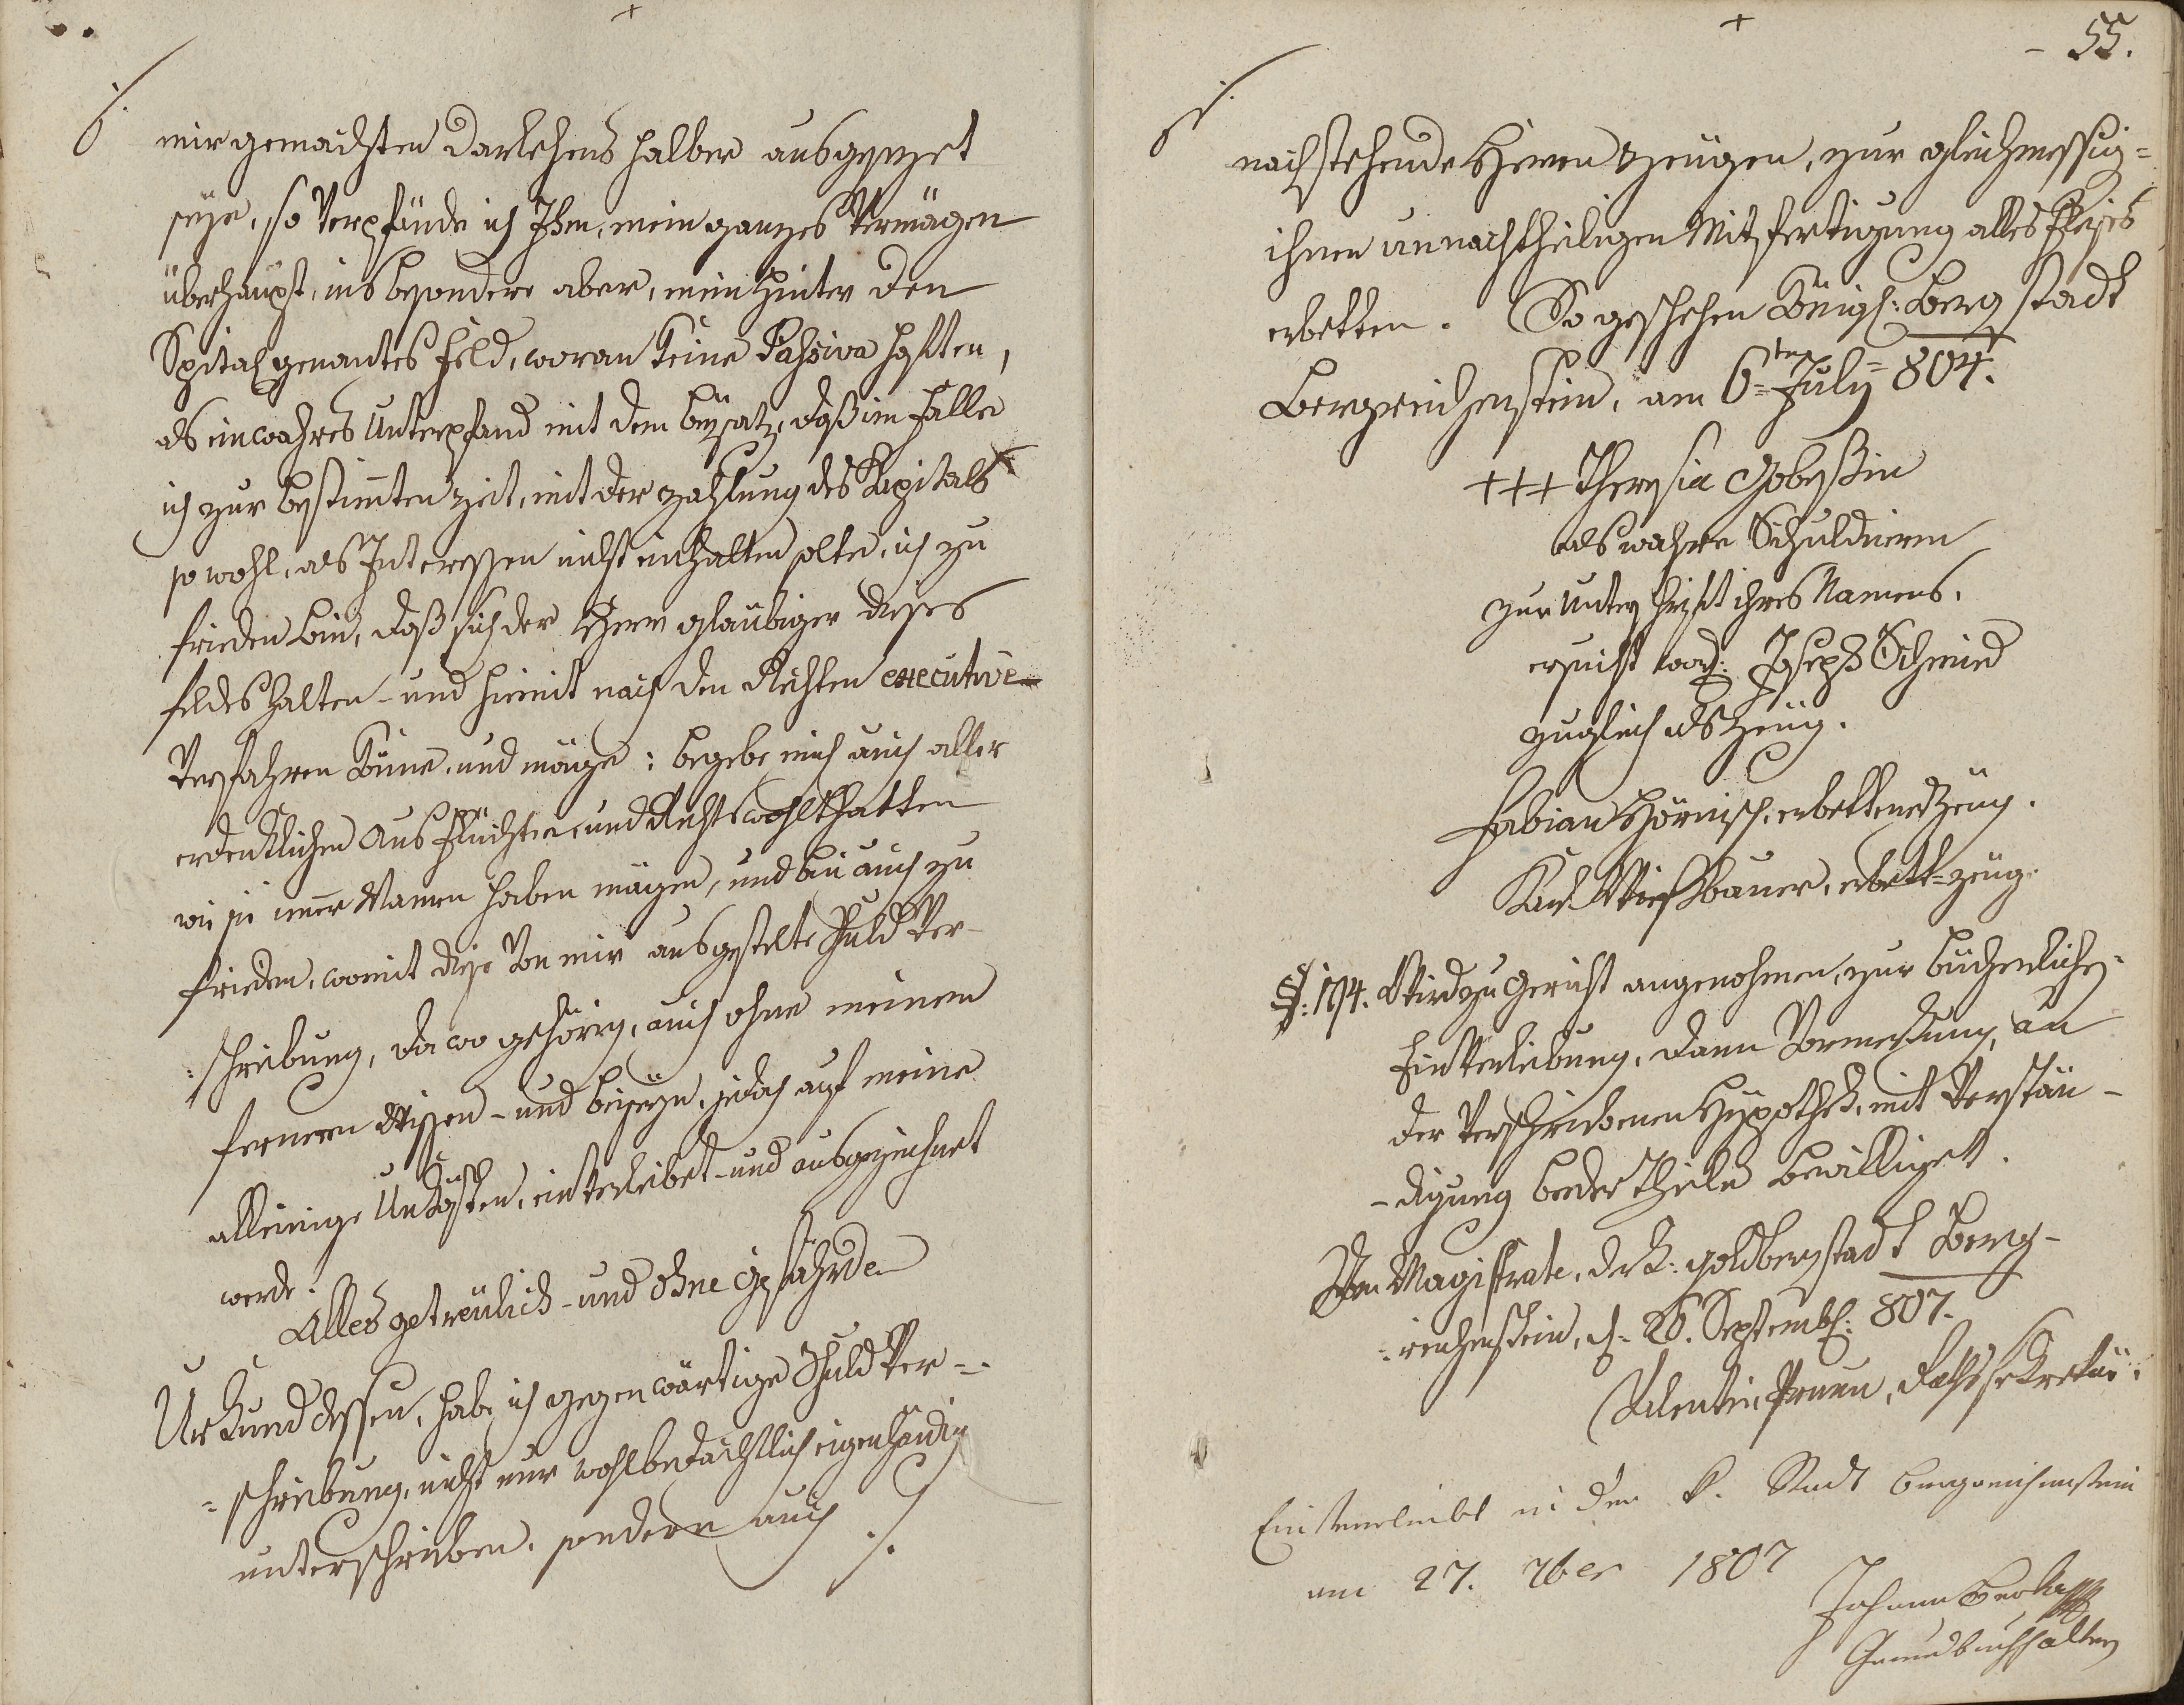 +
mir gemachten Darlehens halber ausgesezet
seÿe, so Verpfände ich Ihm, mein ganzes Vermögen
überhaupt, ins besondere aber, mein hinter den
Spital genantes Feld, woran keine Passiva haften,
als ein wahres Unterpfand mit dem beÿsatz, daß im Falle
ich zur bestimten zeit, mit der zahlung des Kapitals
so wohl, als Interessen nicht einhalten solte, ich zu
frieden bin, daß sich der Herr glaübiger dieses
feldes halten - und hiemit nach den Rechten executive
Verfahren könne, und möge: begebe mich auch aller
erdenklichen Ausflüchten und Rechtswohlthatten
wie sie imer Namen haben mögen, und bin auch zu
frieden, womit diese Von mir ausgestelte Schuld Ver-
=schreibung, da wo gehörig, auch ohne meinem
fernern Wissen - und beisezn, jedoch auf meine
alleinige Unkösten, einverleibet - und ausgezeichnet
werde.
Alles getreülich - und ohne Gefährde
Urkund dessen, habe ich gegenwärtige Schuld Ver=
=schreibung, nicht nur wohlbedächtlich eigenhändig
unterschrieben, sondern auch ./.
+
- 55.
nachstehende Herrn Zeugen, zur gleichmessig=
ihnen unnachtheiligen Mitfertigung alles Fleises
erbetten. So geschehen Königl: Berg stadt
Bergreichenstein, am 6=ten July= 804.
+++ Theresia Gobeßin
als wahre Schuldnerin
zur Unterschrift ihres Namens,
ersucht word: Joseph Schmied
zugleich als Zeüg.
Fabian Hörnisch, erbettener Zeug.
Karl Wießbauer, erbett= zeug.
§: 194. Wird zu Gericht angenohmen, zur bücherlichen
Einverleibung, dann Vormerkung, an
der Verschriebenen Hypothek, mit Verstän-
-digung beeder Theile bewilliget.
Vom Magistrate, der K: Goldbergstadt Berg-
=reichenstein, d: 26. Septemb: 807.
Valentin Prunn, Rathssekretär.
Einverleibt in der k. Stadt Bergreichenstein
am 27. 7ber 1807
Johann
Grundbuchhalter